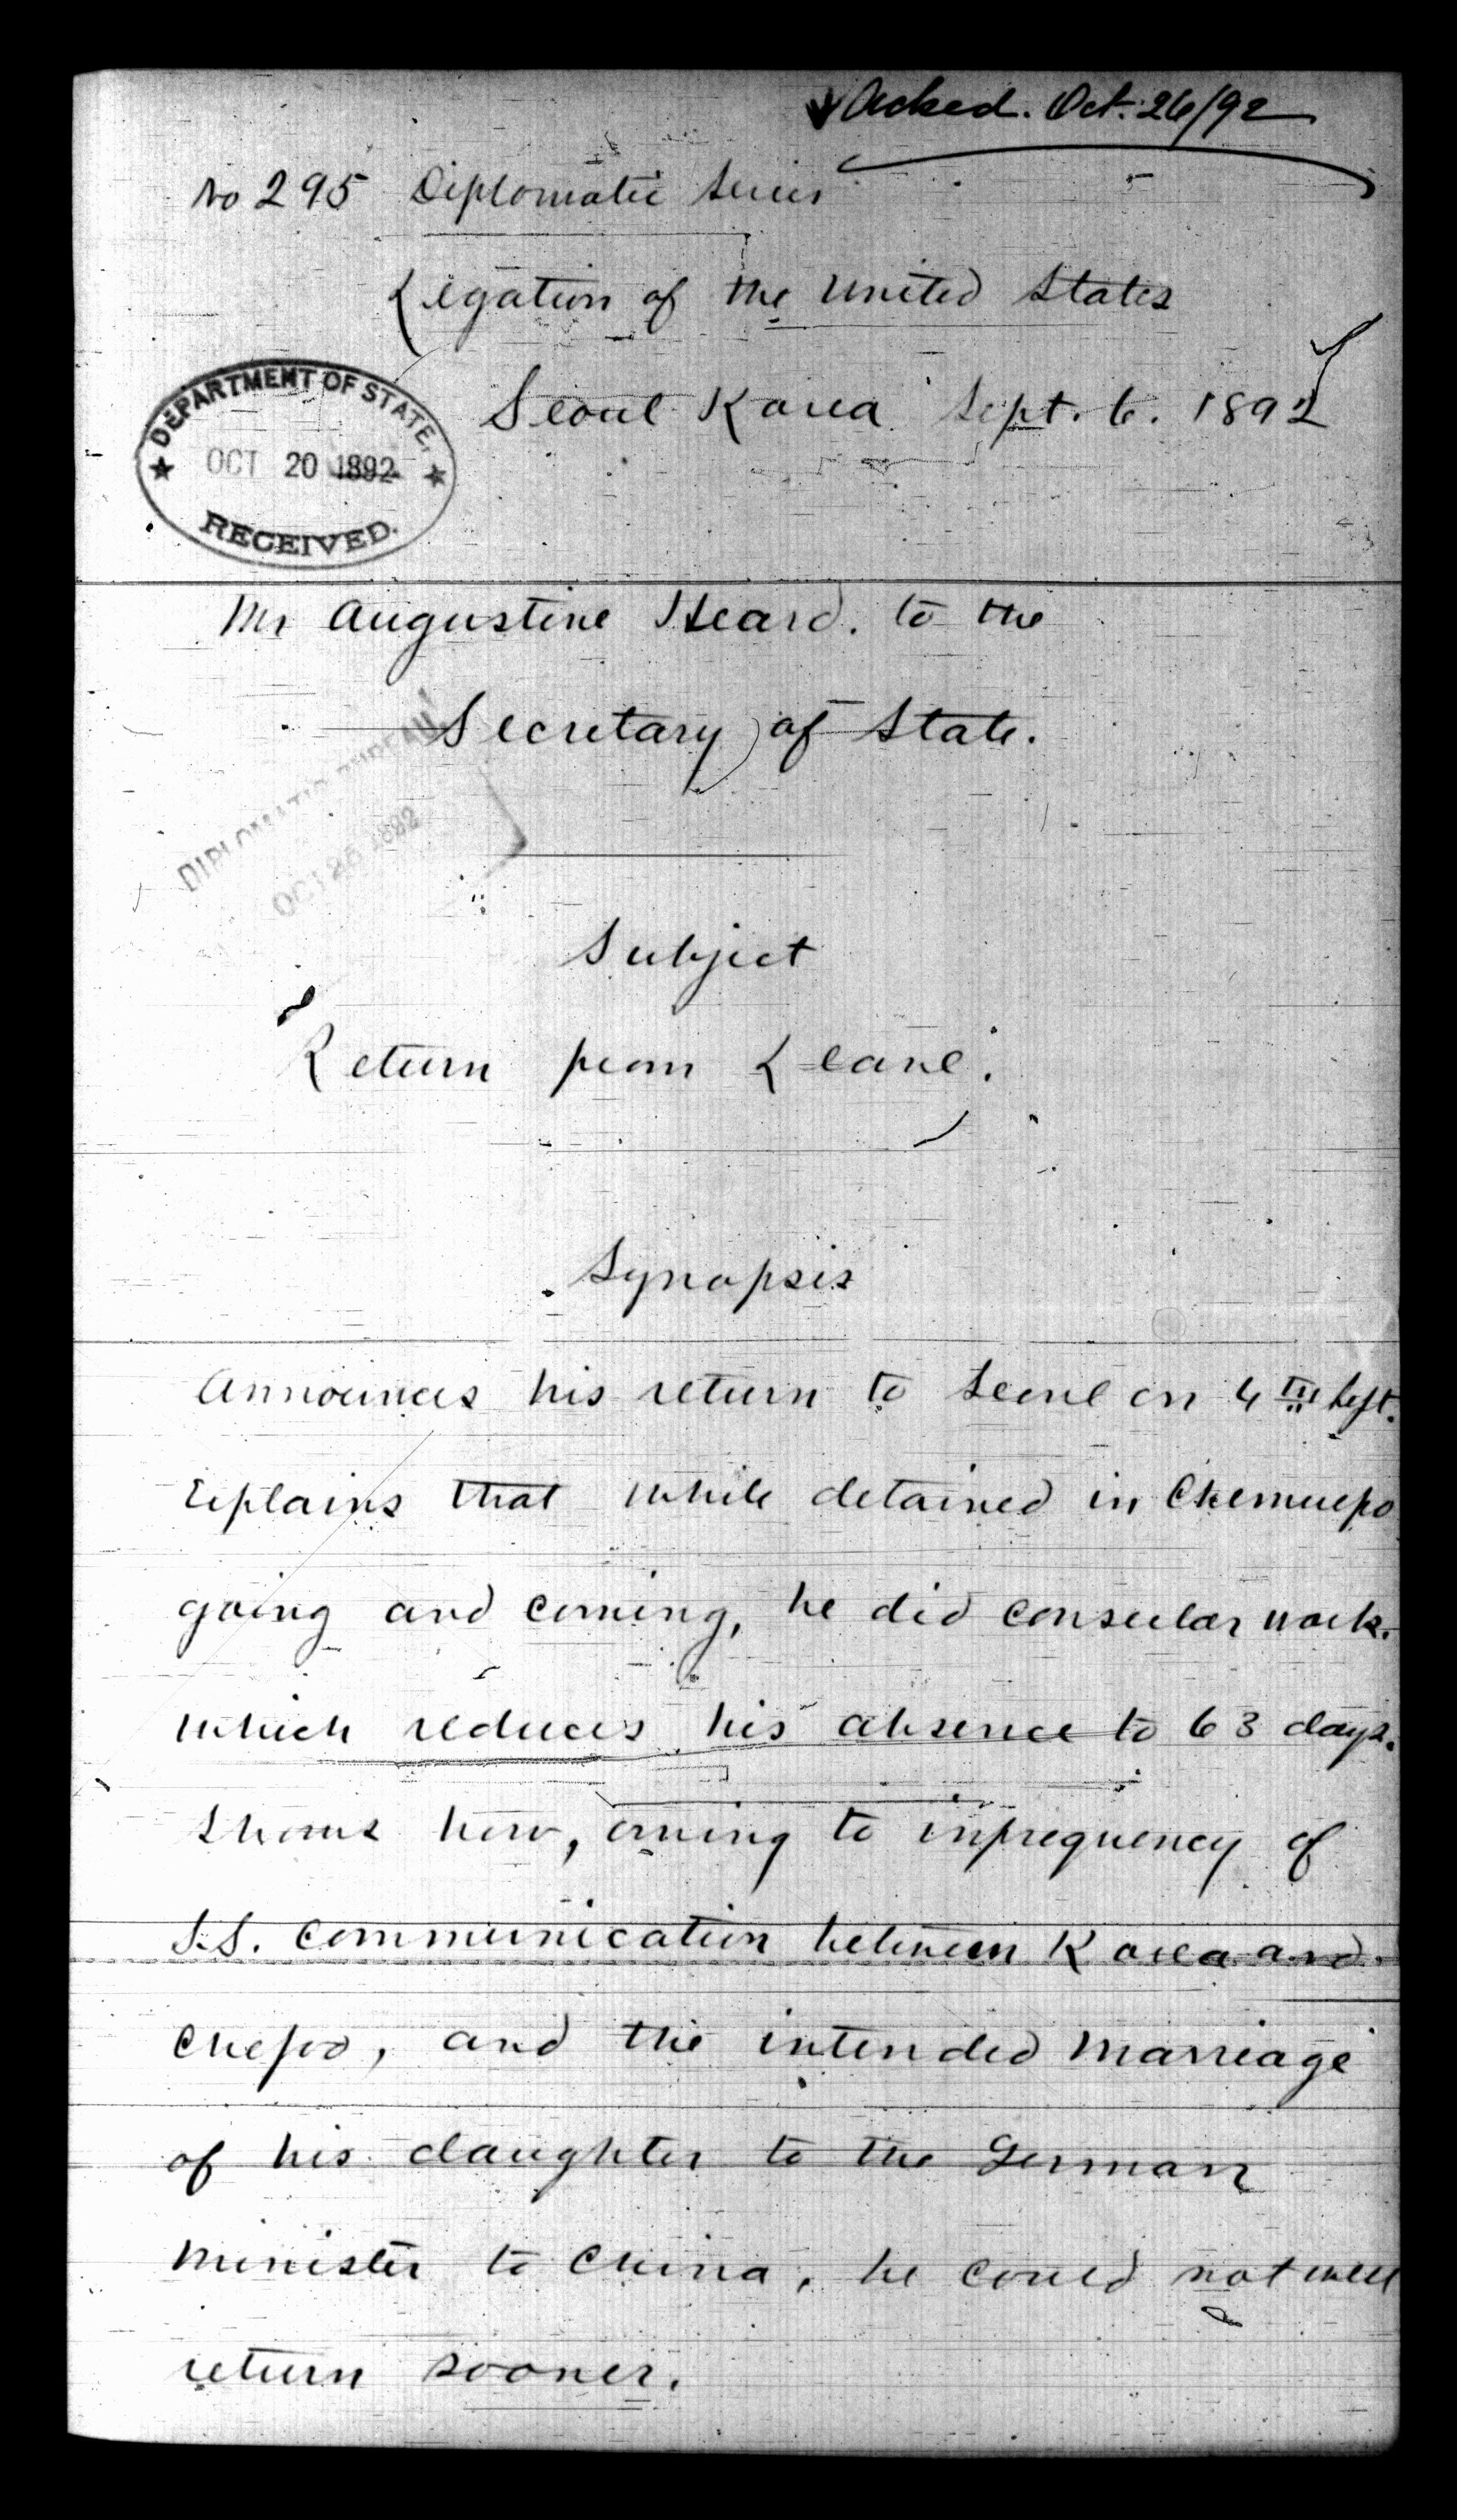 Acked. Oct. 26/92
No 295 Diplomatic Series
Legation of the United States
Seoul Korea Sept. 6. 1892
DEPARTMENT OF STATE,
OCT 20 1892
RECEIVED.
Mr Augustine Heard. to the
Secretary of State.
DIPLOMATIC BUREAU
OCT 26 1892
Subject
Return from Leave.
Synopsis
Announces his return to Seoul on 4th Sept.
Explains that while detained in Chemulpo
going and coming, he did consular work.
which reduces his absence to 63 days.
Shows how, owing to infrequency of
S.S. communication between Korea and
Chefoo, and the intended marriage
of his daughter to the German
Minister to China, he could not well
return sooner.